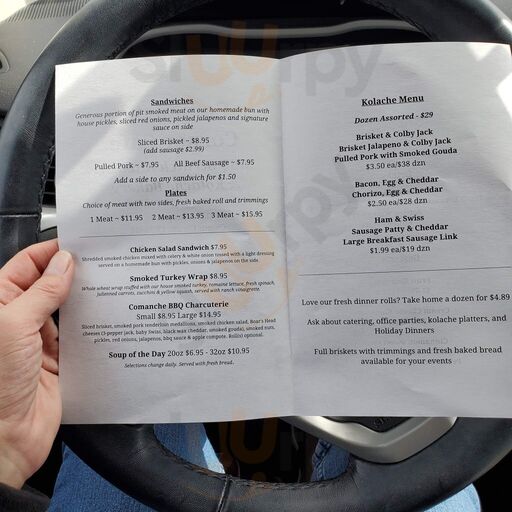 Sandwiches
Generous portion of pit smoked meat on our homemade bun with
house pickles, sliced red onions, pickled jalapenos and signature
sauce on side
Sliced Brisket ~ $8.95
(add sausage $2.99)
Pulled Pork ~ $7.95 All Beef Sausage ~ $7.95
Add a side to any sandwich for $1.50
Plates
Choice of meat with two sides, fresh baked roll and trimmings
1 Meat ~ $11.95 2 Meat ~ $13.95 3 Meat ~ $15.95
Chicken Salad Sandwich $7.95
Shredded smoked chicken mixed with celery & white onion tossed with a light dressing
served on a homemade bun with pickles, onions & jalapenos on the side
Smoked Turkey Wrap $8.95
Whole wheat wrap stuffed with our house smoked turkey, romaine lettuce, fresh spinach,
julienned carrots, zucchini & yellow squash, served with ranch vinaigrette.
Comanche BBQ Charcuterie
Small $8.95 Large $14.95
Sliced brisket, smoked pork tenderloin medallions, smoked chicken salad, Boar's Head
cheeses (3-pepper jack, baby Swiss, black wax cheddar, smoked gouda), smoked nuts,
pickles, red onions, jalapenos, bbq sauce & apple compote. Roll(s) optional.
Soup of the Day 20oz $6.95 - 32oz $10.95
Selections change daily. Served with fresh bread.
Kolache Menu
Dozen Assorted - $29
Brisket & Colby Jack
Brisket Jalapeno & Colby Jack
Pulled Pork with Smoked Gouda
$3.50 ea/$38 dzn
Bacon, Egg & Cheddar
Chorizo, Egg & Cheddar
$2.50 ea/$28 dzn
Ham & Swiss
Sausage Patty & Cheddar
Large Breakfast Sausage Link
$1.99 ea/$19 dzn
Love our fresh dinner rolls? Take home a dozen for $4.89
Ask about catering, office parties, kolache platters, and
Holiday Dinners
Full briskets with trimmings and fresh baked bread
available for your events